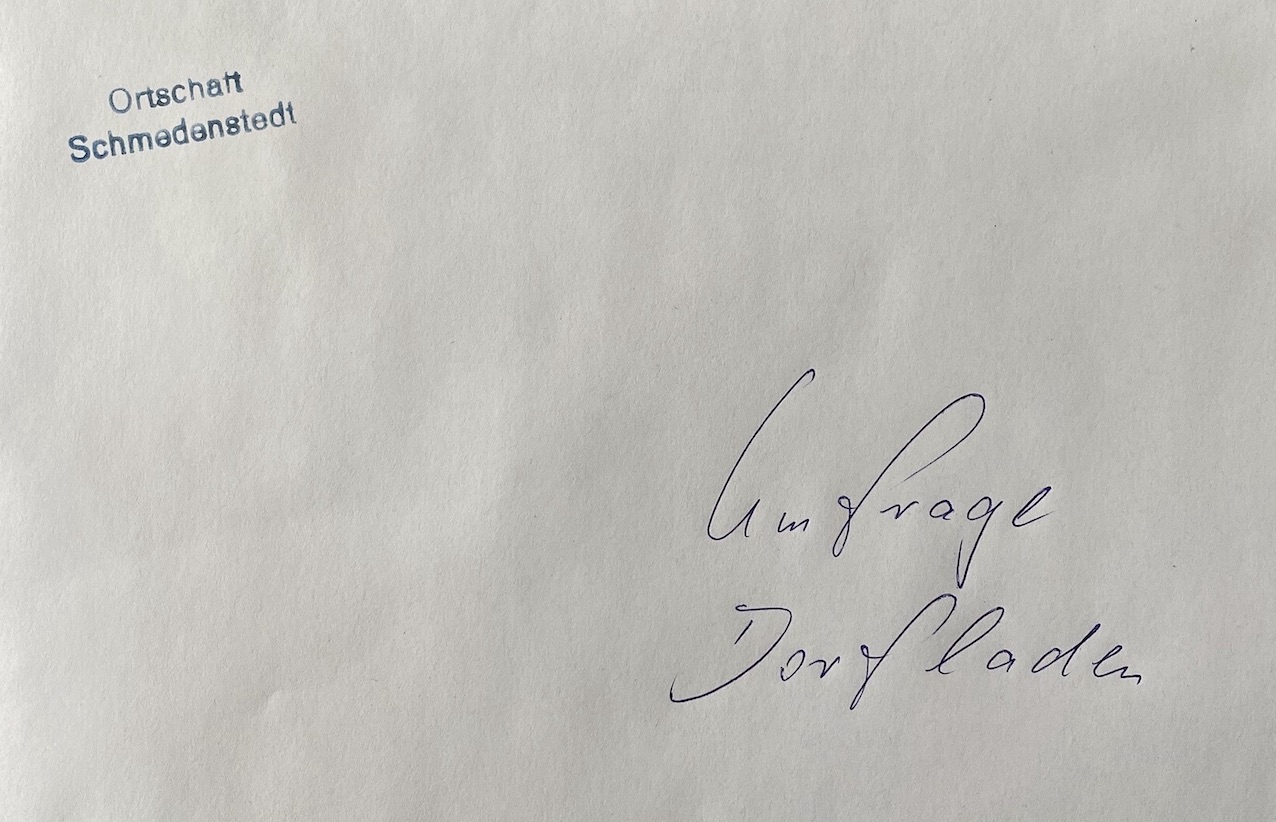 Ortschaft
Schmedenstedt
Umfrage
Dorfladen